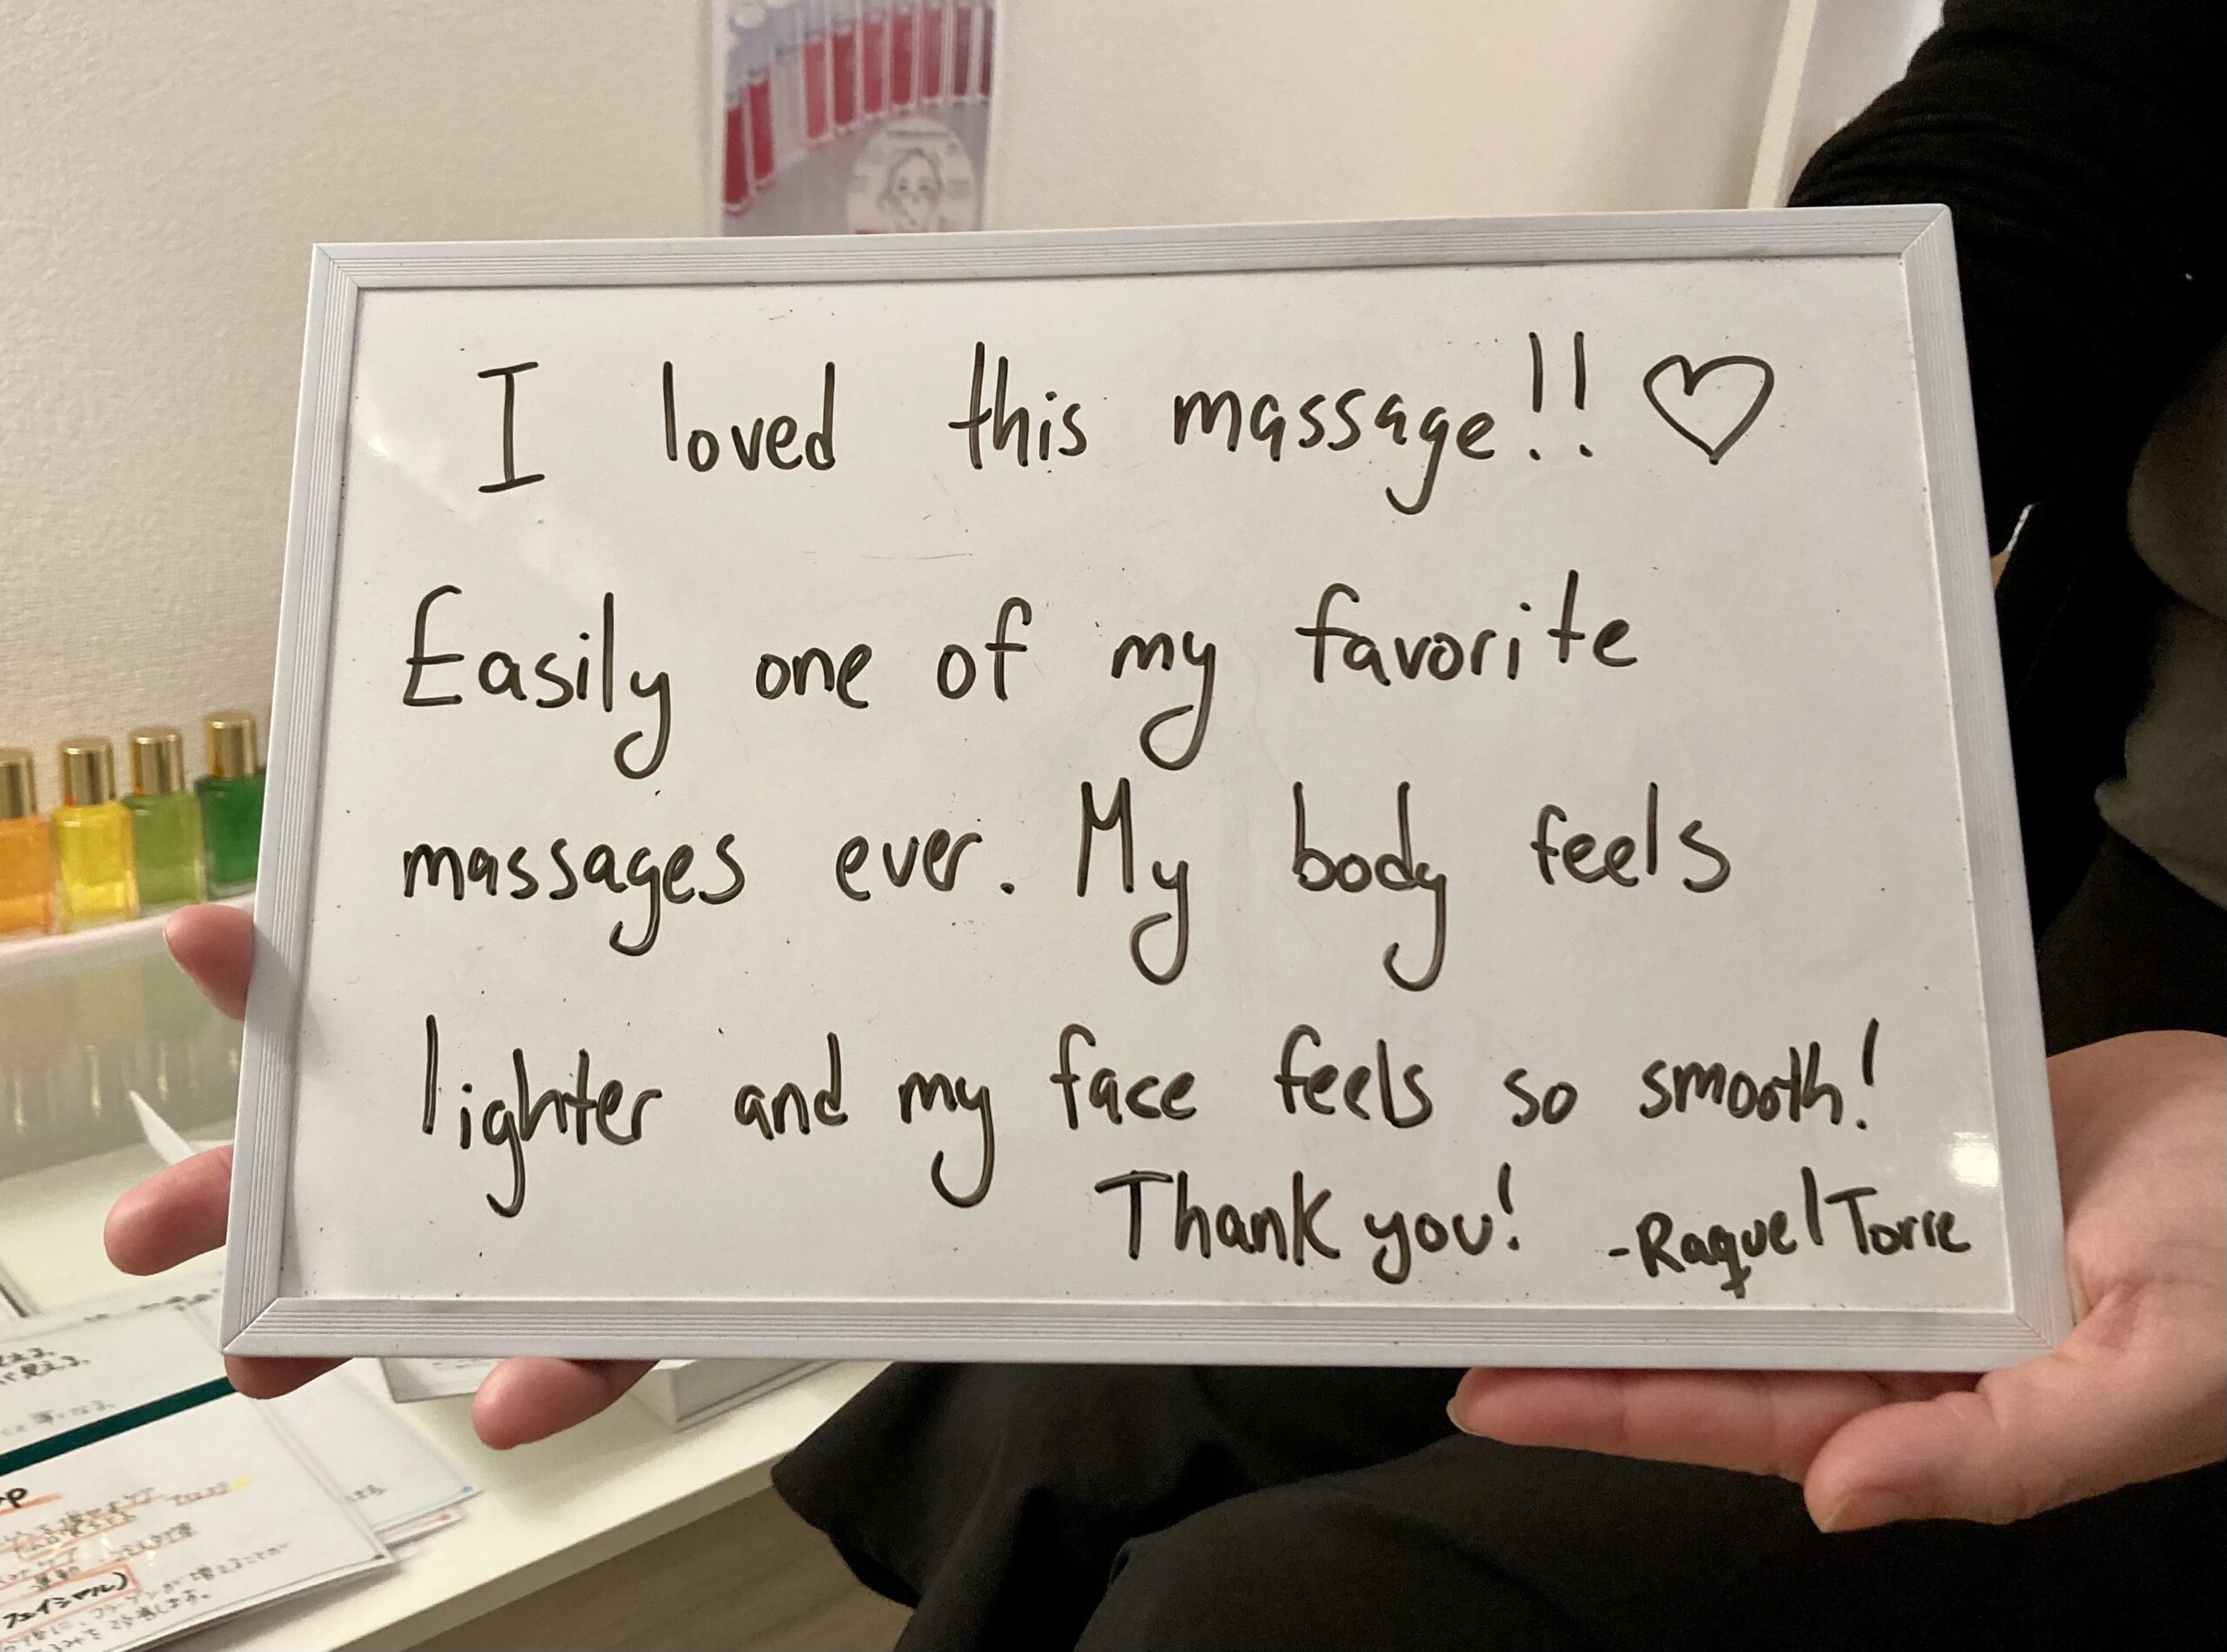 I loved this massage!! ♡
Easily one of my favorite
massages ever. My body feels
lighter and my face feels so smooth!
Thank you! -Raquel Torre
フェイシャル)